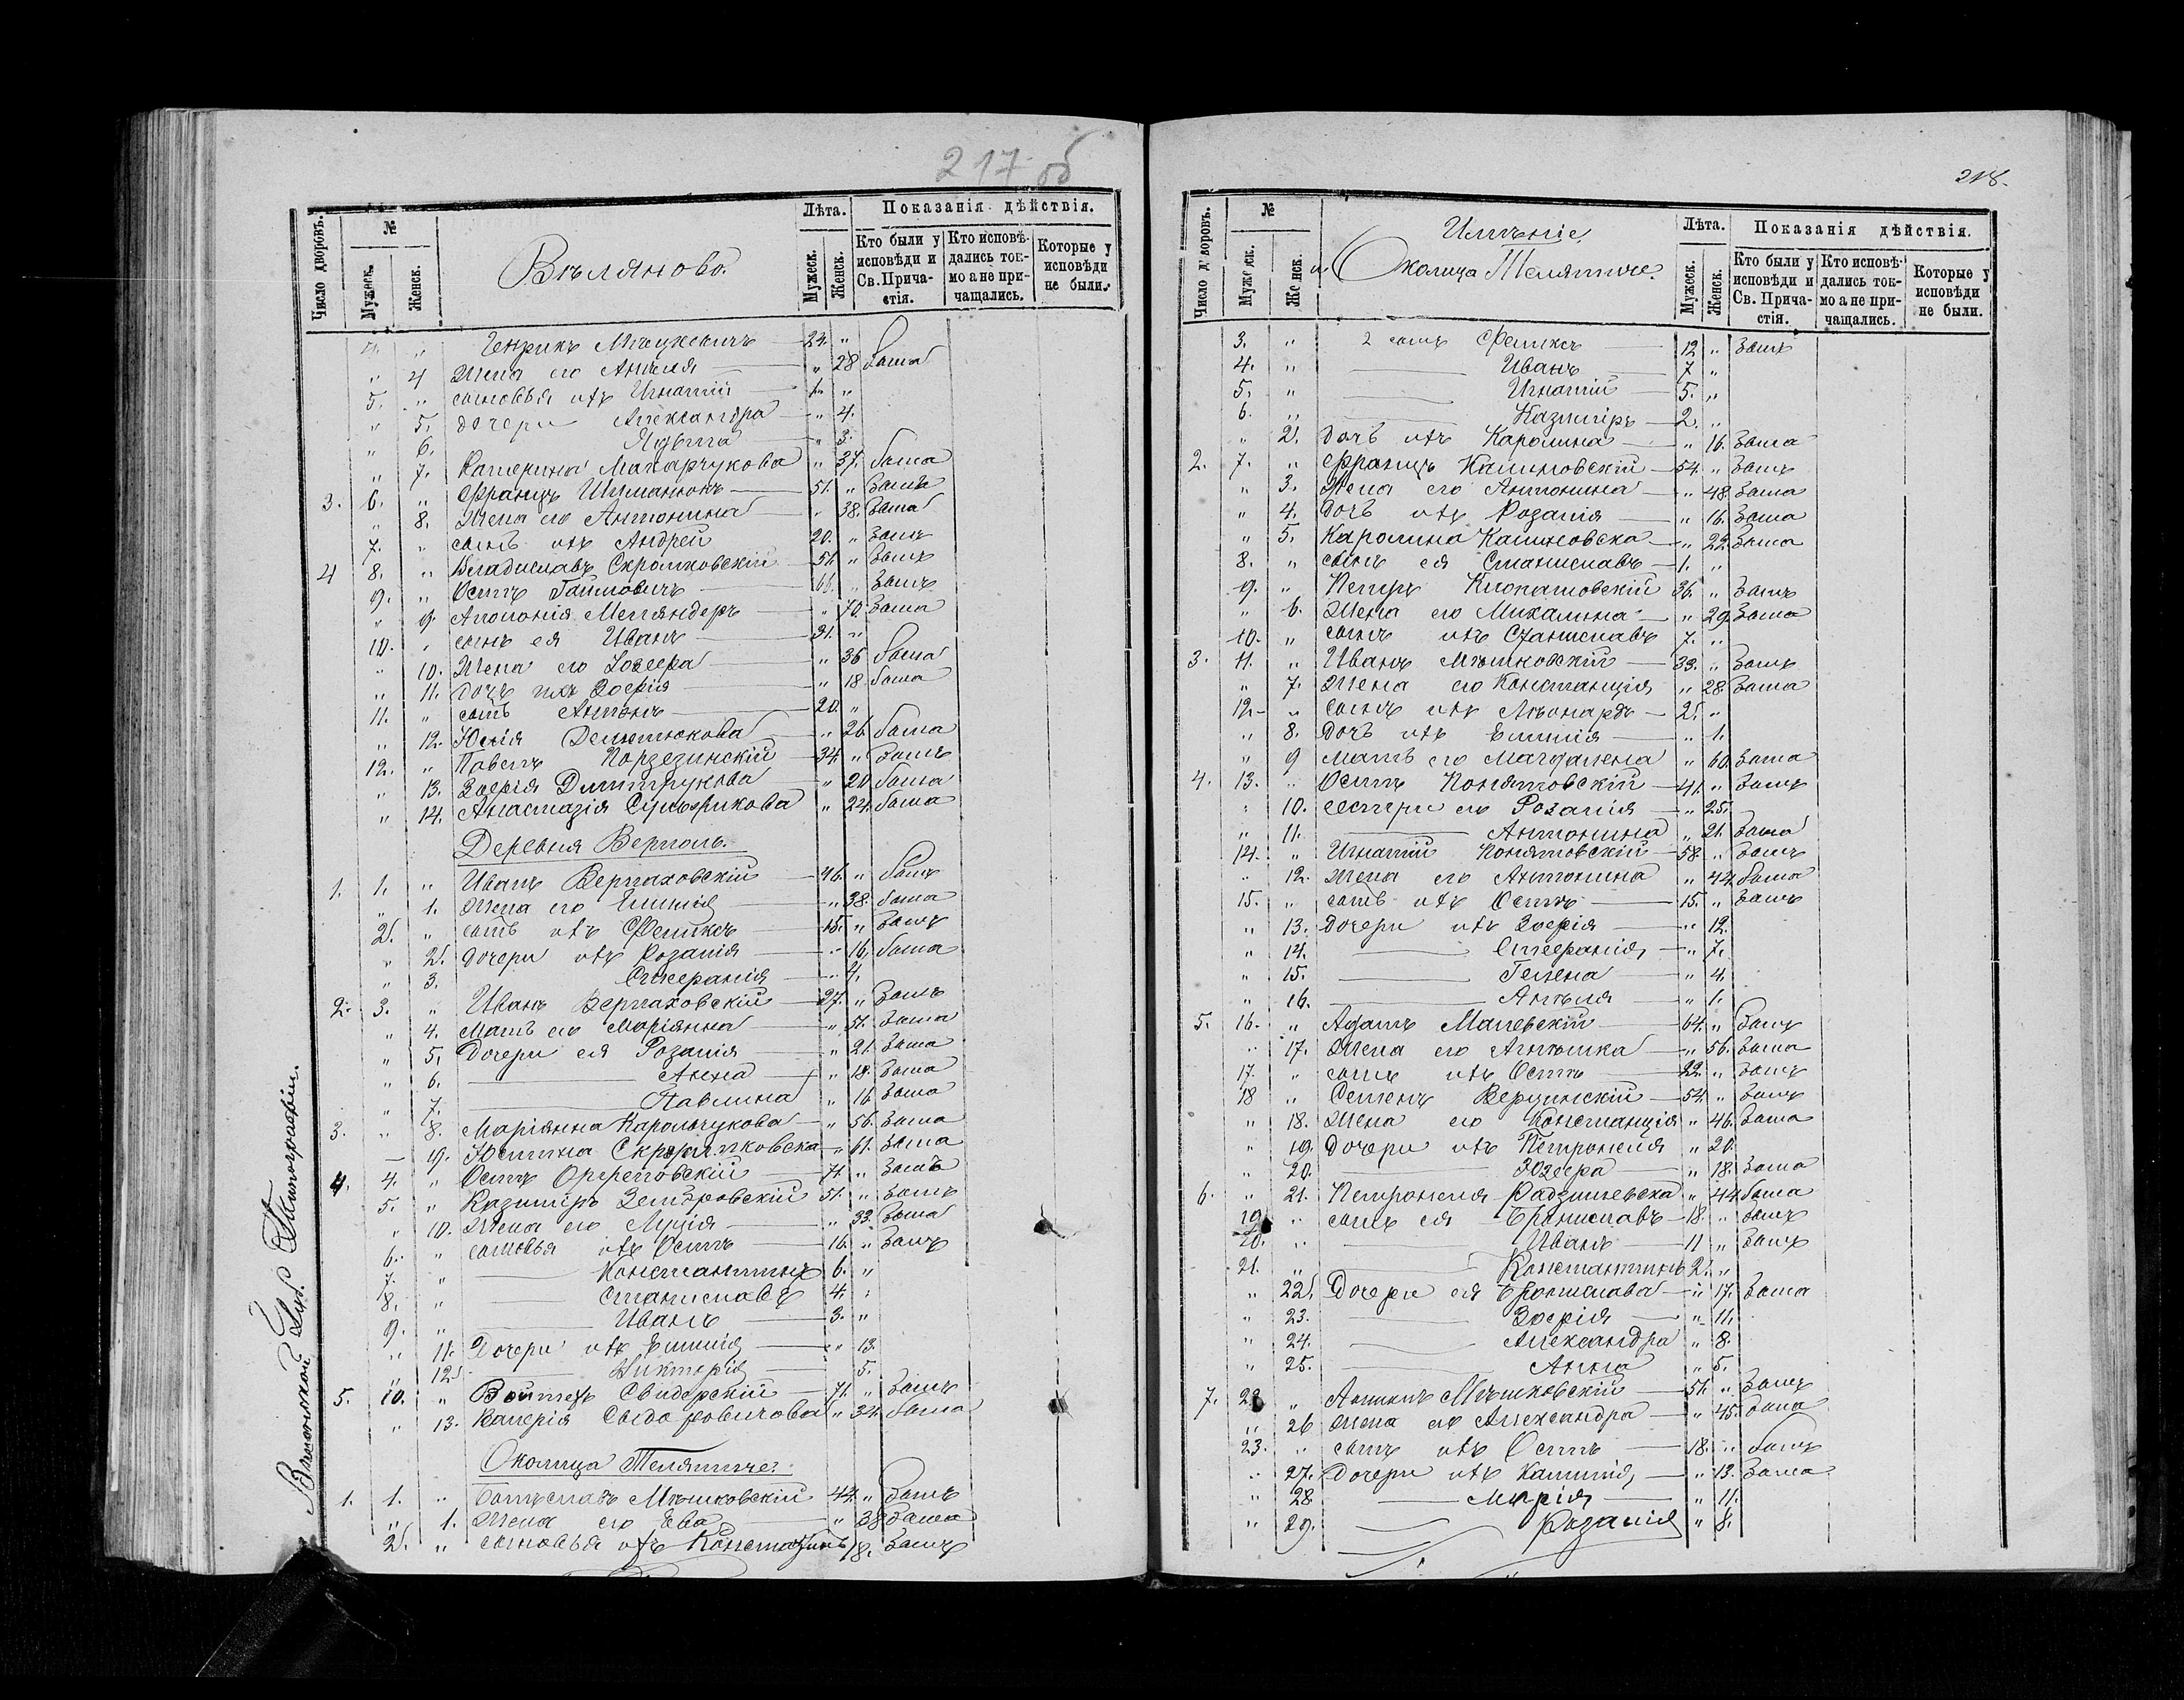 217 об
Число дворовъ.
№
Мужеск.
Женск.
Вѣляново.
Лѣта.
Мужеск.
Женск.
Показанія дѣйствія.
Кто были у исповѣди и Св. Причастія.
Кто исповѣдались токмо а не причащались.
Которые у исповѣди не были.
4. " Генрикъ Мацкевичъ 29. "
" 4 Жена его Анѣля " 28 Была
5. " сыновья ихъ Игнатій 1. "
" 5. дочери Александра " 4.
" 6. Ядвига " 3.
" 7. Катерина Макарчукова " 37. была
3. 6. " Францъ Шиманюкъ 51. " Былъ
" 8. Жена его Антонина " 38. Была
7. " сынъ ихъ Андрей 20. " Былъ
4 8. " Владиславъ Скромковскій 51. " Былъ
9. " Осипъ 66. " Былъ
" 9. Аполонія " 70. Была
10. " сынъ ея Иванъ 31. "
" 10. Жена его Юзефа " 36 была
" 11. дочь ихъ Зофія " 18 была
11. " сынъ Антонъ 20. "
" 12. Юлія " 26. была
12. " Павелъ Порзезинскій 34. " Былъ
" 13. Зофія Дмитрукова " 20 была
" 14. Анастазія " 24. была
Деревня Верполь.
1. 1. " Иванъ Верпаховскій 46. " былъ
" 1. Жена его Емилія " 38. была
2. " сынъ ихъ Феликсъ 15. " Былъ
" 2. дочери ихъ Розалія " 16. была
" 3. Стефанія " 4.
2. 3. " Иванъ Верпаховскій 27. " Былъ
" 4. Мать его Маріянна " 51. Была
" 5. Дочери ея Розалія " 21. Была
" 6. Анна " 18. Была
" 7. Павлина " 16 Была
3. " 8. Маріянна Карольчукова " 56. Была
9. Юстина Скромковска " 61. Была
4. 4. " Осипъ 71. " Былъ
5. " Казимиръ 51. " Былъ
" 10. Жена его Луція " 33. Была
6. " сыновья ихъ Осипъ 16. " Былъ
7. " Константинъ 6. "
8. " Станиславъ 4. "
9. " Иванъ 3. "
" 11. Дочери ихъ Емилія " 13.
" 12. Викторія 5.
5. 10. " Войтехъ Свидерскій 71. " Былъ
" 13. Валерія Сыдоровичова " 34. была
Околица Телятиче.
1. 1. " Болеславъ Мѣшковскій 44. " Былъ
" 1. Жена его Ева " 38 Была
2. " сыновья ихъ Константинъ 18. Былъ
Виленской Губ. Типографіи.
218.
Число дворовъ.
№
Мужеск.
Женск.
Имѣніе
и Околица Телятиче.
Лѣта.
Мужеск.
Женск.
Показанія дѣйствія.
Кто были у исповѣди и Св. Причастія.
Кто исповѣдались токмо а не причащались.
Которые у исповѣди не были.
3. " 2 сынъ Феликсъ 12 " Былъ
4. " Иванъ 7 "
5. " Игнатій 5. "
6. " Казимиръ 2. "
" 2. дочь ихъ Каролина " 16. Была
2. 7. " Францъ Калиновскій 54. " Былъ
" 3. Жена его Антонина " 48. Была
" 4. дочь ихъ Розалія " 16. Была
" 5. Каролина Калиновска " 22. Была
8. " сынъ ея Станиславъ 1. "
9. " Петръ 36. " Былъ
" 6. Жена его Михалина " 29. Была
10. " сынъ ихъ Станиславъ 7. "
3. 11. " Иванъ Мѣшковскій 33. " Былъ
" 7. Жена его Констанція " 28. Была
12. " сынъ ихъ Леонардъ 2. "
" 8. дочь ихъ Емилія " 1.
" 9 Мать его Магдалена " 60. Была
4. 13. " Осипъ Понятовскій 41. " Былъ
" 10. сестры его Розалія " 25.
" 11. Антонина " 21. Была
14. " Игнатій Понятовскій 58. " Былъ
" 12. Жена его Антонина " 44. была
15. " сынъ ихъ Осипъ 15. " Былъ
" 13. Дочери ихъ Зофія " 12.
" 14. Стефанія " 7.
" 15. Гелена " 4.
" 16. Анѣля " 1.
5. 16. " Адамъ Малевскій 64. " Былъ
" 17. Жена его Агнѣшка " 56. Была
17. " сынъ ихъ Осипъ 22. " Былъ
18 " Семенъ Верцинскій 54. " Былъ
" 18. Жена его Констанція " 46. Была
" 19. Дочери ихъ Петронеля " 20.
" 20. Юзефа " 18. Была
6. " 21. Петронеля Радзишевска " 44 была
19. " сынъ ея Брониславъ 18. " Былъ
20. " Иванъ 11 " Былъ
21. " Константинъ 2. "
" 22. Дочери ея Бронислава " 17. Была
" 23. Зофія " 11.
" 24. Александра " 8.
" 25. Анна " 5.
7. 22 " Антонъ Мѣшковскій 51. " Былъ
" 26 Жена его Александра " 45. Была
23. " сынъ ихъ Осипъ 18. " былъ
" 27. Дочери ихъ Камилія " 13. Была
" 28 Марія " 11.
" 29. Розалія " 8.